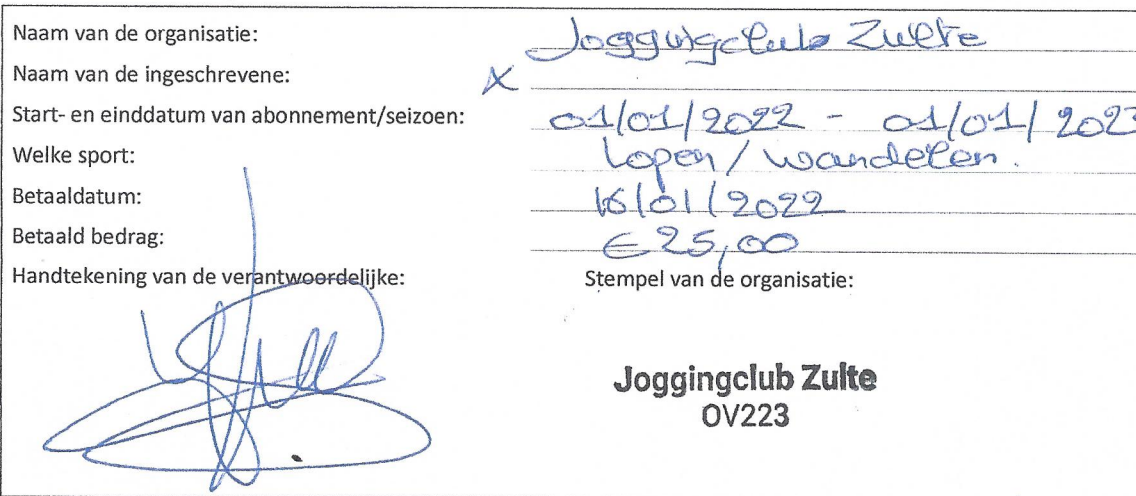 Naam van de organisatie: Joggingclub Zulte
Naam van de ingeschrevene: X
Start- en einddatum van abonnement/seizoen: 01/01/2022 - 01/01/2023
Welke sport: Lopen / wandelen.
Betaaldatum: 16/01/2022
Betaald bedrag: € 25,00
Handtekening van de verantwoordelijke: Stempel van de organisatie:
Joggingclub Zulte
OV223